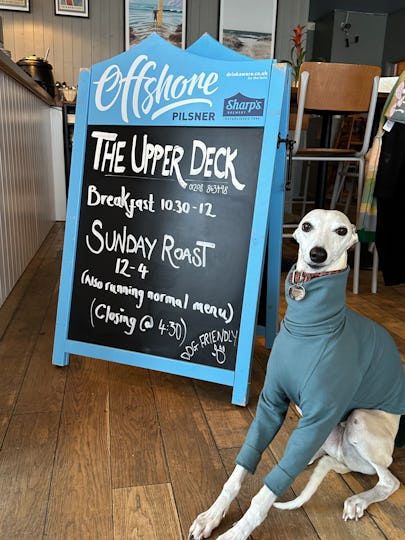 Offshore
PILSNER
drinkaware.co.uk
Sharp's
BREWERY
THE UPPER DECK
01208 863498
Breakfast 10.30-12
SUNDAY ROAST
12-4
(Also running normal menu)
(Closing @ 4:30)
DOG FRIENDLY